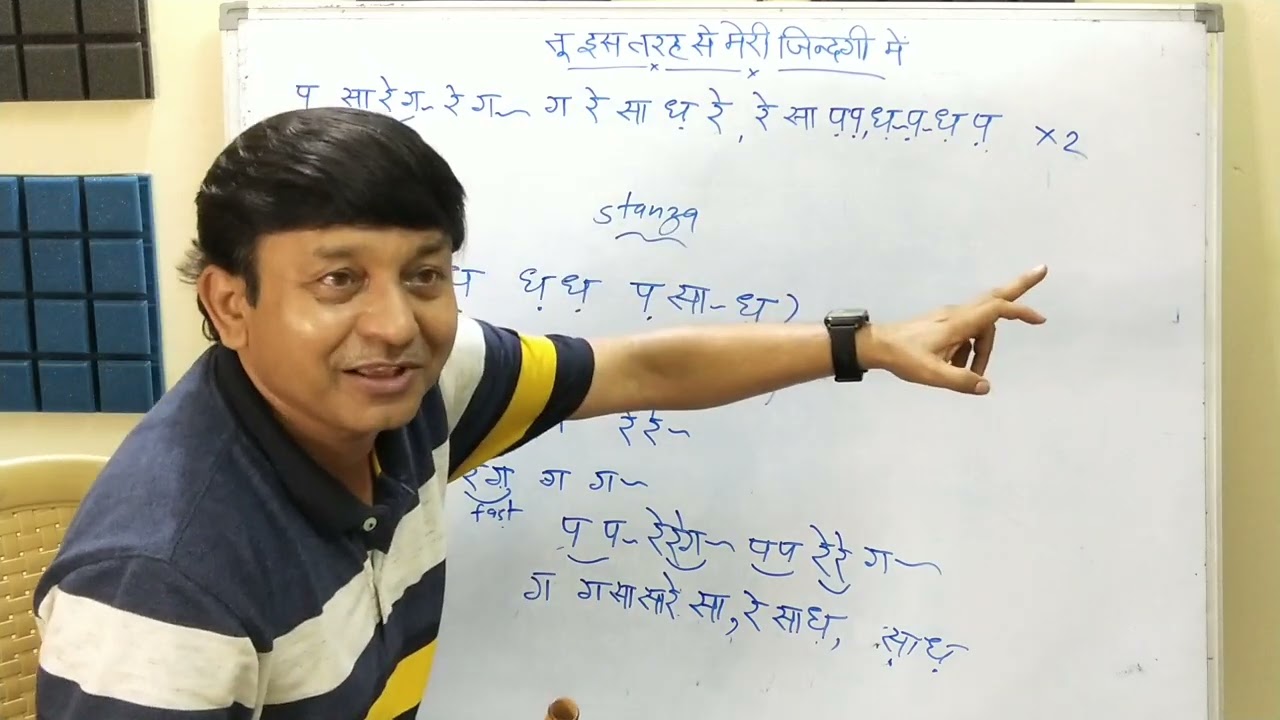 तू इस तरह से मेरी जिन्दगी में
प़ सा रे ग~ रे ग~ ग रे सा ध़ रे, रे सा प़प़,ध़~प़~ध़ प़ ×2
stanza
ध़ ध़ प़ सा~ध़)
रे रे~
रेग ग ग~
fast
प़ प~रेरेग~ पप रेरे ग~
ग गसासारे सा, रे साध़, साध़